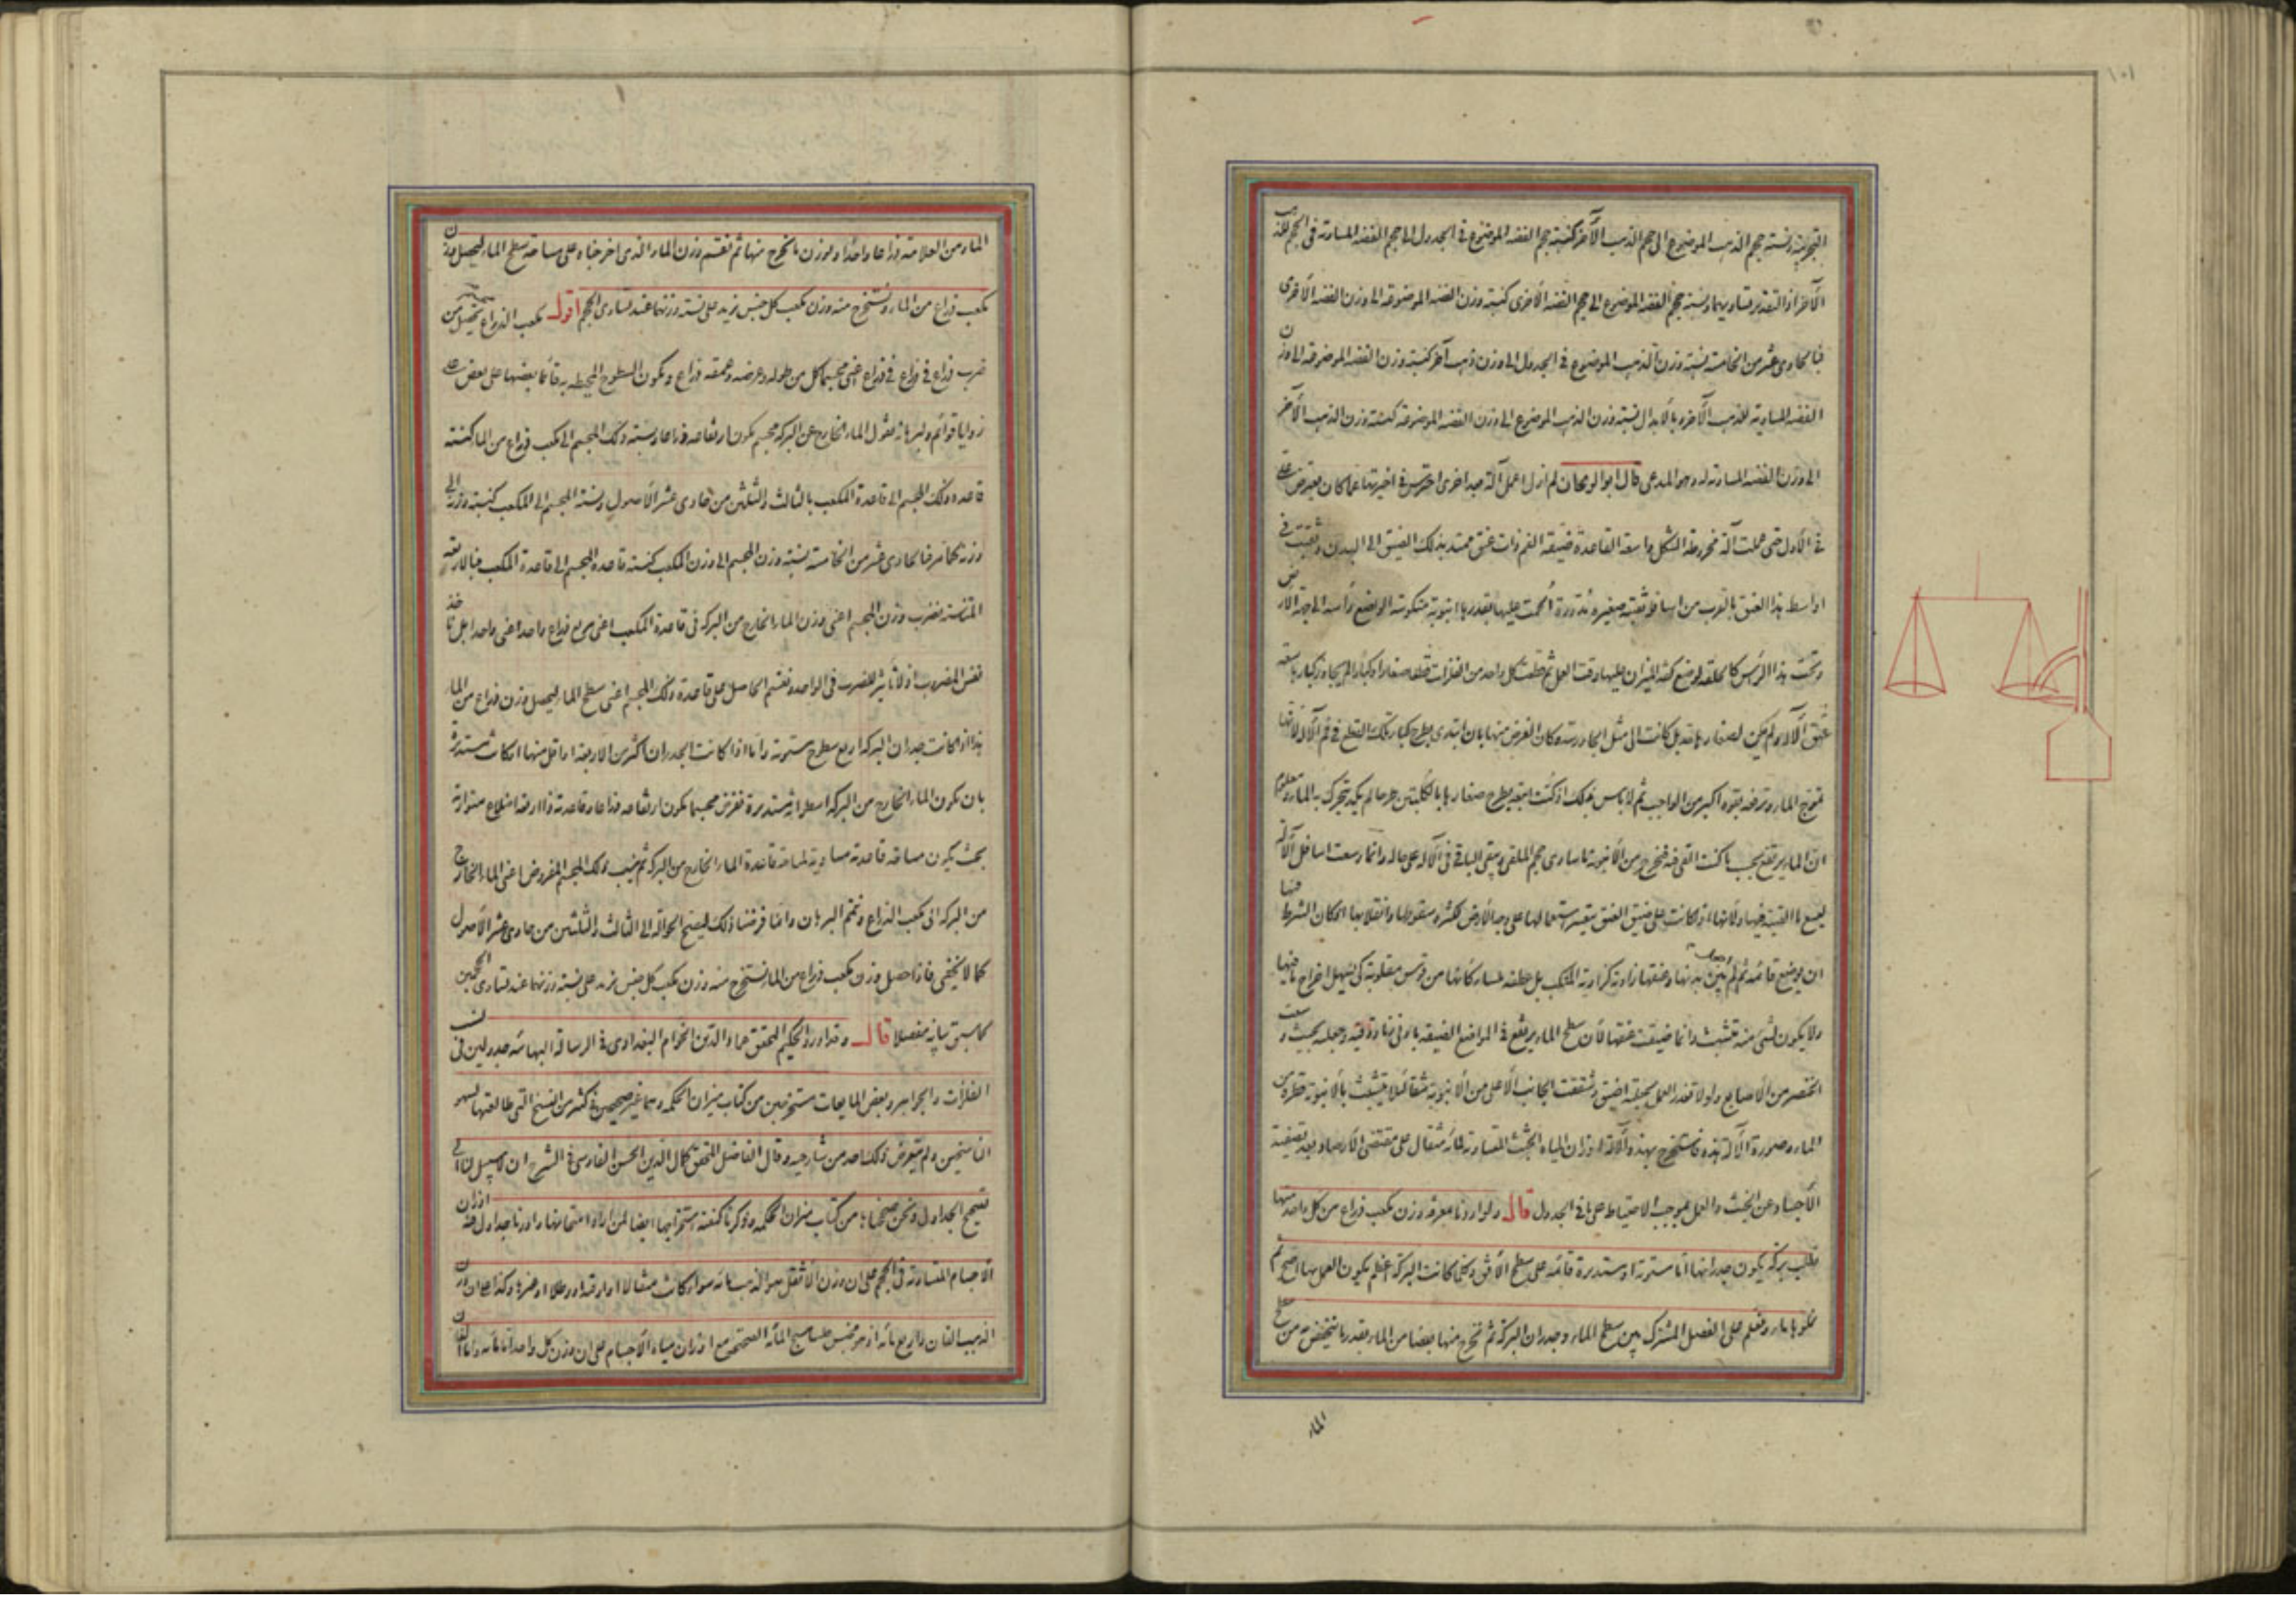 ١٠١
ونسبة حجم الذهب الموضوع الى حجم الذهب الآخر كنسبة حجم الفضه الموضوع في الجدول الى حجم الفضه المساوية في الحجم للذهب
الآخر اذ التقدير تساويهما ونسبة حجم الفضه الموضوع الى حجم الفضه الأخرى كنسبة وزن الفضه الموضوعة الى وزن الفضه الأخرى
فبالحادى عشر من الخامسة نسبة وزن الذهب الموضوع في الجدول الى وزن ذهب آخر كنسبة وزن الفضه الموضوعة الى وزن
الفضه المساوية للذهب الآخر وبالابدال نسبة وزن الذهب الموضوع الى وزن الفضه الموضوعة كنسبة وزن الذهب الآخر
الى وزن الفضه المساوية له وهو المدعى قال ابو الريحان لم ازل اعمل آلة بعد اخرى احترس في اخيرتها عما كان يعترض
في الأولى حتى عملت آلة مخروطة الشكل واسعة القاعدة ضيقة الفم ذات عنق ممتد بذلك الضيق الى البدن وثقبت في
اواسط هذا العنق بالقرب من اسافله ثقبة صغيره مدورة و ألحمت عليها بقدرها انبوبة منكوسة الوضع رأسها الى جهة الارض
وتحت هذا الرأس كالحلقة لوضع كفة الميزان عليها وقت العمل ثم قطعت كل واحد من الفلزات قطعا صغارا وكبارا لم يجاوز كبارها سعة
عنق الآلة ولم يكن لصغارها وكان الغرض منها بان ابتدى بطرح كبار تلك القطع في فم الآلة لأنها
تموج الماء وترفعه بقوه اكبر من الواجب ثم لا باس بذلك اذ كنت اتبعه بطرح صغارها بالكلبتين طرحا لم يكد يتحرك به الماء ومعلوم
ان الماء يرتفع بحسب ما كنت القى فيه فيخرج من الأنبوبة ما يساوى حجم الملقى ويبقى الباقى في الآلة على حاله وانما وسعت اسافل الآلة
ليسع ما القيت فيها ولأنها لو كانت على ضيق العنق تعسر استعمالها على وجه الأرض لكثرة سقوطها وانقلابها لمكان الشرط فيها
ان يوضع قائمه ثم لم يكن بين بدنها وعنقها زاوية كزاوية المنكب بل عطفة ملساء كأنها من قوس مقلوبة كى يسهل اخراج ما فيها
ولا يكون لشئ منه تشبث وانما ضيقت عنقها لأن سطح الماء يرتفع في المواضع الضيقة بادنى زيادة وجعلته بحيث وسعت
الخنصر من الأصابع ولولا تعذر العمل لجعلته اضيق وشققت الجانب الأعلى من الانبوبة شقا لئلا يتشبث بالأنبوبة قطرة من
الماء وصورة الآلة هذه فاستخرج بهذه الآلة اوزان المياه للجثث المتساوية لمائة مثقال على مقتضى الأرصاد وبعد تصفية
الأجساد عن الخبث والعمل بموجب الاحتياط على ما في الجدول قال ولو اردنا معرفة وزن مكعب ذراع من كل واحد منها
نطلب بركة يكون جدرانها اما مستوية او مستديرة قائمة على سطح الأفق وكلما كانت البركة اعظم يكون العمل بها اصح ثم
نملؤها ماء ونعلم على الفصل المشترك بين سطح الماء وجدران البركة ثم نخرج منها بعضا من الماء بقدر ما ينخفض به من سطح
الماء
الماء من العلامة ذراعا واحدا ونوزن ما نخرج منها ثم نقسم وزن الماء الذى اخرجناه على مساحة سطح الماء ليحصل وزن
مكعب ذراع من الماء ونستخرج منه وزن مكعب كل جنس نريد على نسبة وزنهما عند تساوى الحجم اقول مكعب الذراع يحصل من
ضرب ذراع في ذراع في ذراع اعنى مجسما كل من طوله وعرضه وعمقه ذراع ويكون السطوح المحيطه به قائما بعضها على بعض على
زوايا قوائم ولبرهانه نقول الماء الخارج عن البركة مجسم يكون ارتفاعه ذراعا ونسبة ذلك المجسم الى مكعب ذراع من الماء كنسبة
قاعدة ذلك المجسم الى قاعدة المكعب بالثالث والثلثين من حادى عشر الأصول ونسبة المجسم الى المكعب كنسبة وزنه الى
وزنه كما مر فبالحادى عشر من الخامسة نسبة وزن المجسم الى وزن المكعب كنسبة قاعدة المجسم الى قاعدة المكعب فبالاربعة
المتناسبة نضرب وزن المجسم اعنى وزن الماء الخارج من البركة في قاعدة المكعب اعنى مربع ذراع واحد اعنى واحدا بل نأخذ
نفس المضروب اذ لا تأثير للضرب في الواحد ونقسم الحاصل على قاعدة ذلك المجسم اعنى سطح الماء ليحصل وزن ذراع من الماء
هذا اذا كانت جدران البركة اربع سطوح مستوية واما اذا كانت الجدران اكثر من الاربعة او اقل منها او كانت مستديرة
بان يكون الماء الخارج من البركة اسطوانة مستديرة نفرض مجسما يكون ارتفاعه ذراعا وقاعدته ذا اربعة اضلاع متوازية
بحيث يكون مساحة قاعدته مساوية لمساحة قاعدة الماء الخارج من البركة ثم ينسب ذلك المجسم المفروض اعنى الماء الخارج
من البركة الى مكعب الذراع ونتمم البرهان وانما فرضنا ذلك ليصح الحوالة الى الثالث والثلثين من حادى عشر الأصول
كما لا يخفى فاذا حصل وزن مكعب ذراع من الماء نستخرج منه وزن مكعب كل جنس نريد على نسبة وزنهما عند تساوى الحجمين
كما سبق بيانه مفصلا قال وقد اورد الحكيم المحقق عماد الدين الخوام البغدادى في الرسالة البهائيه جدولين في
الفلزات والجواهر وبعض المايعات مستخرجين من كتاب ميزان الحكمه وهما غير صحيحين في كثير من النسخ التى طالعتها لسهو
الناسخين ولم يتعرض لذلك احد من شارحيه وقال الفاضل المحقق كمال الدين الحسن الفارسى في الشرح ان لا سبيل لنا الى
تصحيح الجداول ونحن صححناها من كتاب ميزان الحكمه وذكرنا كيفية استخراجها ايضا لمن اراد امتحانها واوردنا جداول فيه اوزان
الأجسام المتساوية في الحجم على ان وزن الأثقل هو الذهب مائة سواء كانت مثقالا او اوقية او رطلا او غيرها وكذا على ان وزن
الذهب الفان واربع مائة اذ هو مخبس المائة الصحيح مع اوزان مياه الأجسام على ان وزن كل واحد اما مائة واما الفان